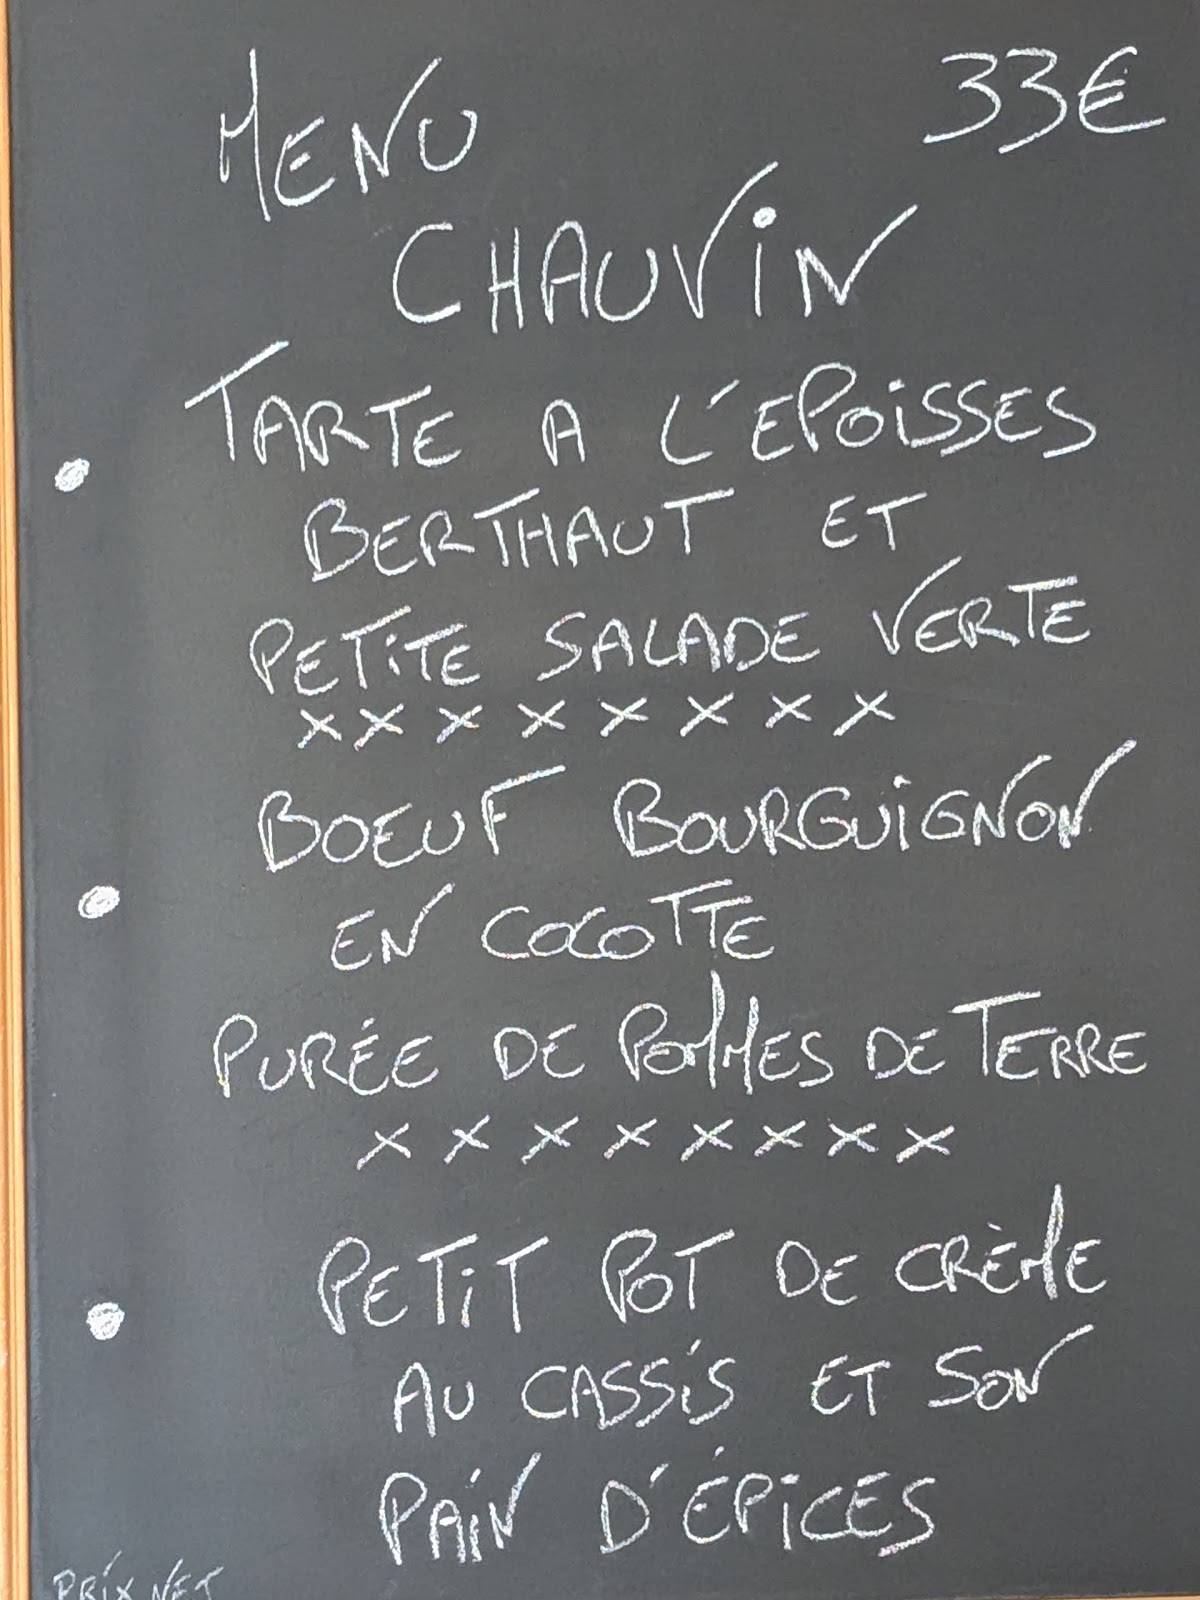 MENU 33€
CHAUViN
TARTE A L'EPOiSSES
BERTHAUT ET
PETiTE SALADE VERTE
x x x x x x x x
BOEUF BOURGUiGNON
EN COCOTTE
PURÉE DE POMMES DE TERRE
x x x x x x x x
PETiT POT DE CRÈME
AU CASSiS ET SON
PAiN D'ÉPiCES
PRiX NET